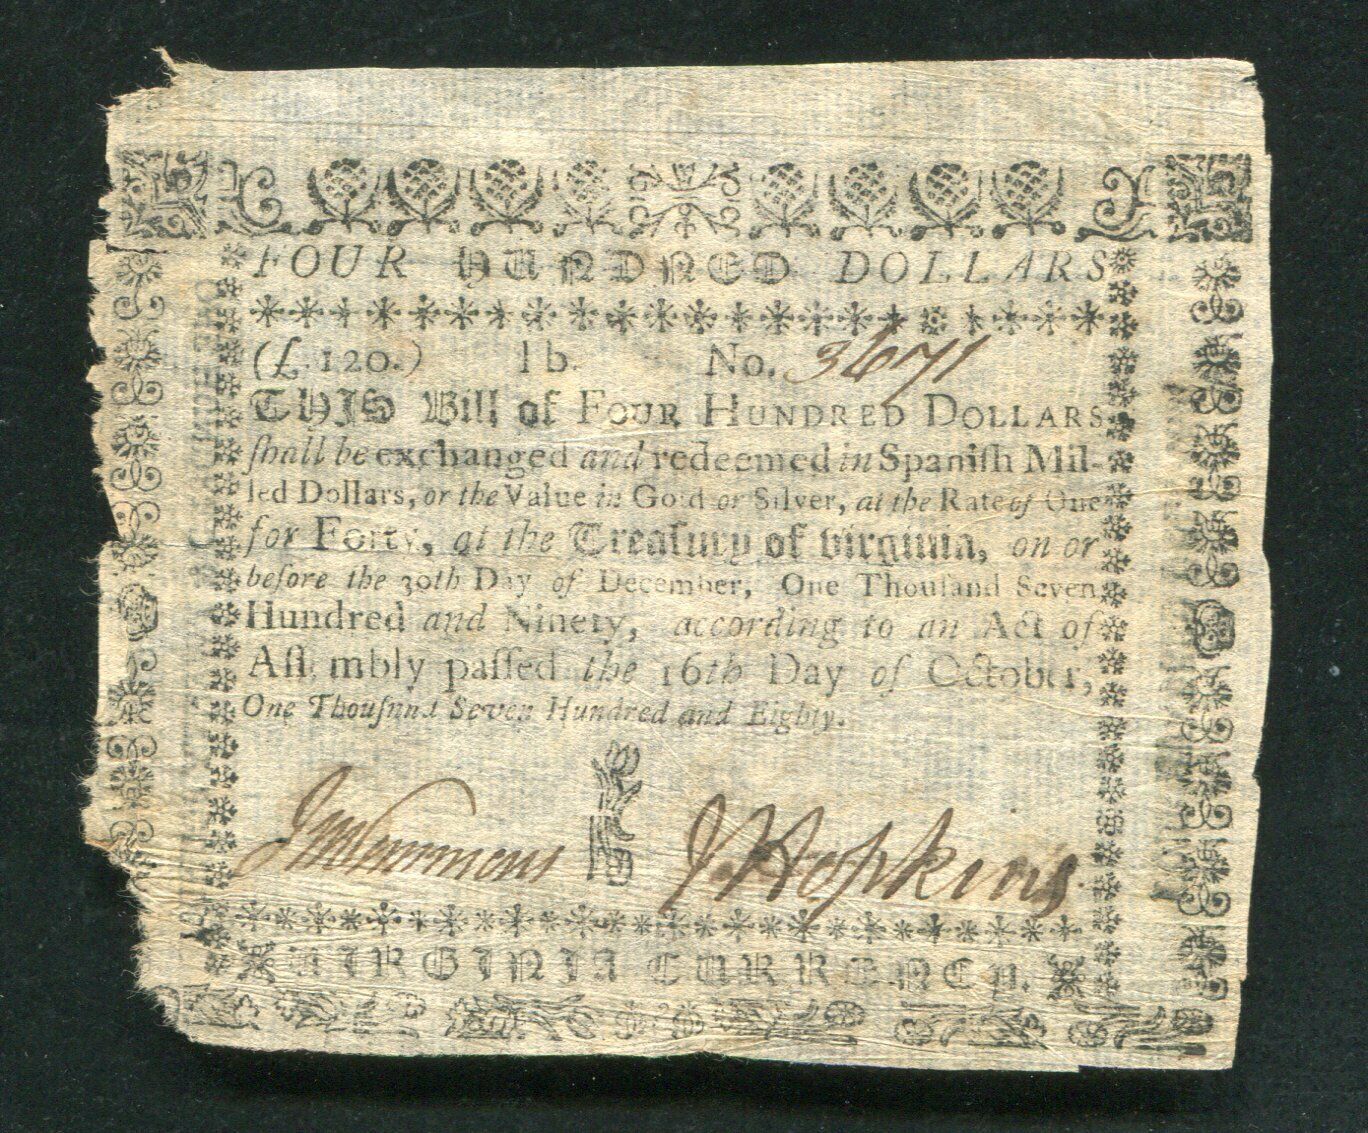 FOUR HUNDRED DOLLARS
(£.120.) 1b. No. 3671
THIS Bill of FOUR HUNDRED DOLLARS
ſhall be exchanged and redeemed in Spaniſh Mil-
led Dollars, or the Value in Gold or Silver, at the Rate of One
for Forty, at the Treaſury of Virginia, on or
before the 30th Day of December, One Thouſand Seven
Hundred and Ninety, according to an Act of
Aſſembly paſſed the 16th Day of October,
One Thouſand Seven Hundred and Eighty.
J. Hopkins
VIRGINIA CURRENCY.